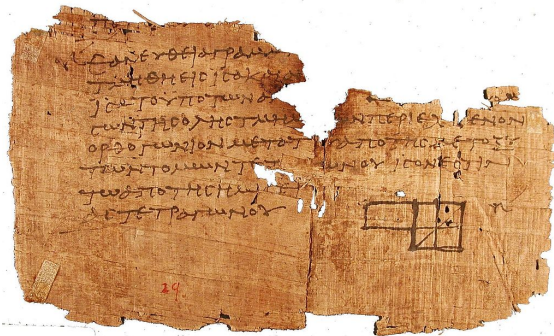 ΕΑΝ ΕΥΘΕΙΑ ΓΡΑΜΜ
ΤΜΗΘΗ ΕΙϹ ΙϹΑ ΚΑΙ Α
ΙϹΑ ΤΟ ΥΠΟ ΤΩΝ Α
ϹΩΝ ΤΗϹ ΟΛΗϹ ΤΜΗ Ν ΠΕΡΙΕΧΟΜΕΝΟΝ
ΟΡΘΟΓΩΝΙΟΝ ΜΕΤΑ ΤΟΥ ΑΠΟ ΤΗϹ ΜΕΤΟΞΥ
ΤΩΝ ΤΟΜΩΝ ΤΕΤ ΩΝΟΥ ΙϹΟΝ ΕϹΤΙΝ
ΤΩ ΑΠΟ ΤΗϹ ΗΜΙϹΕΙ
ΑϹ ΤΕΤΡΑΓΩΝΟΥ
29